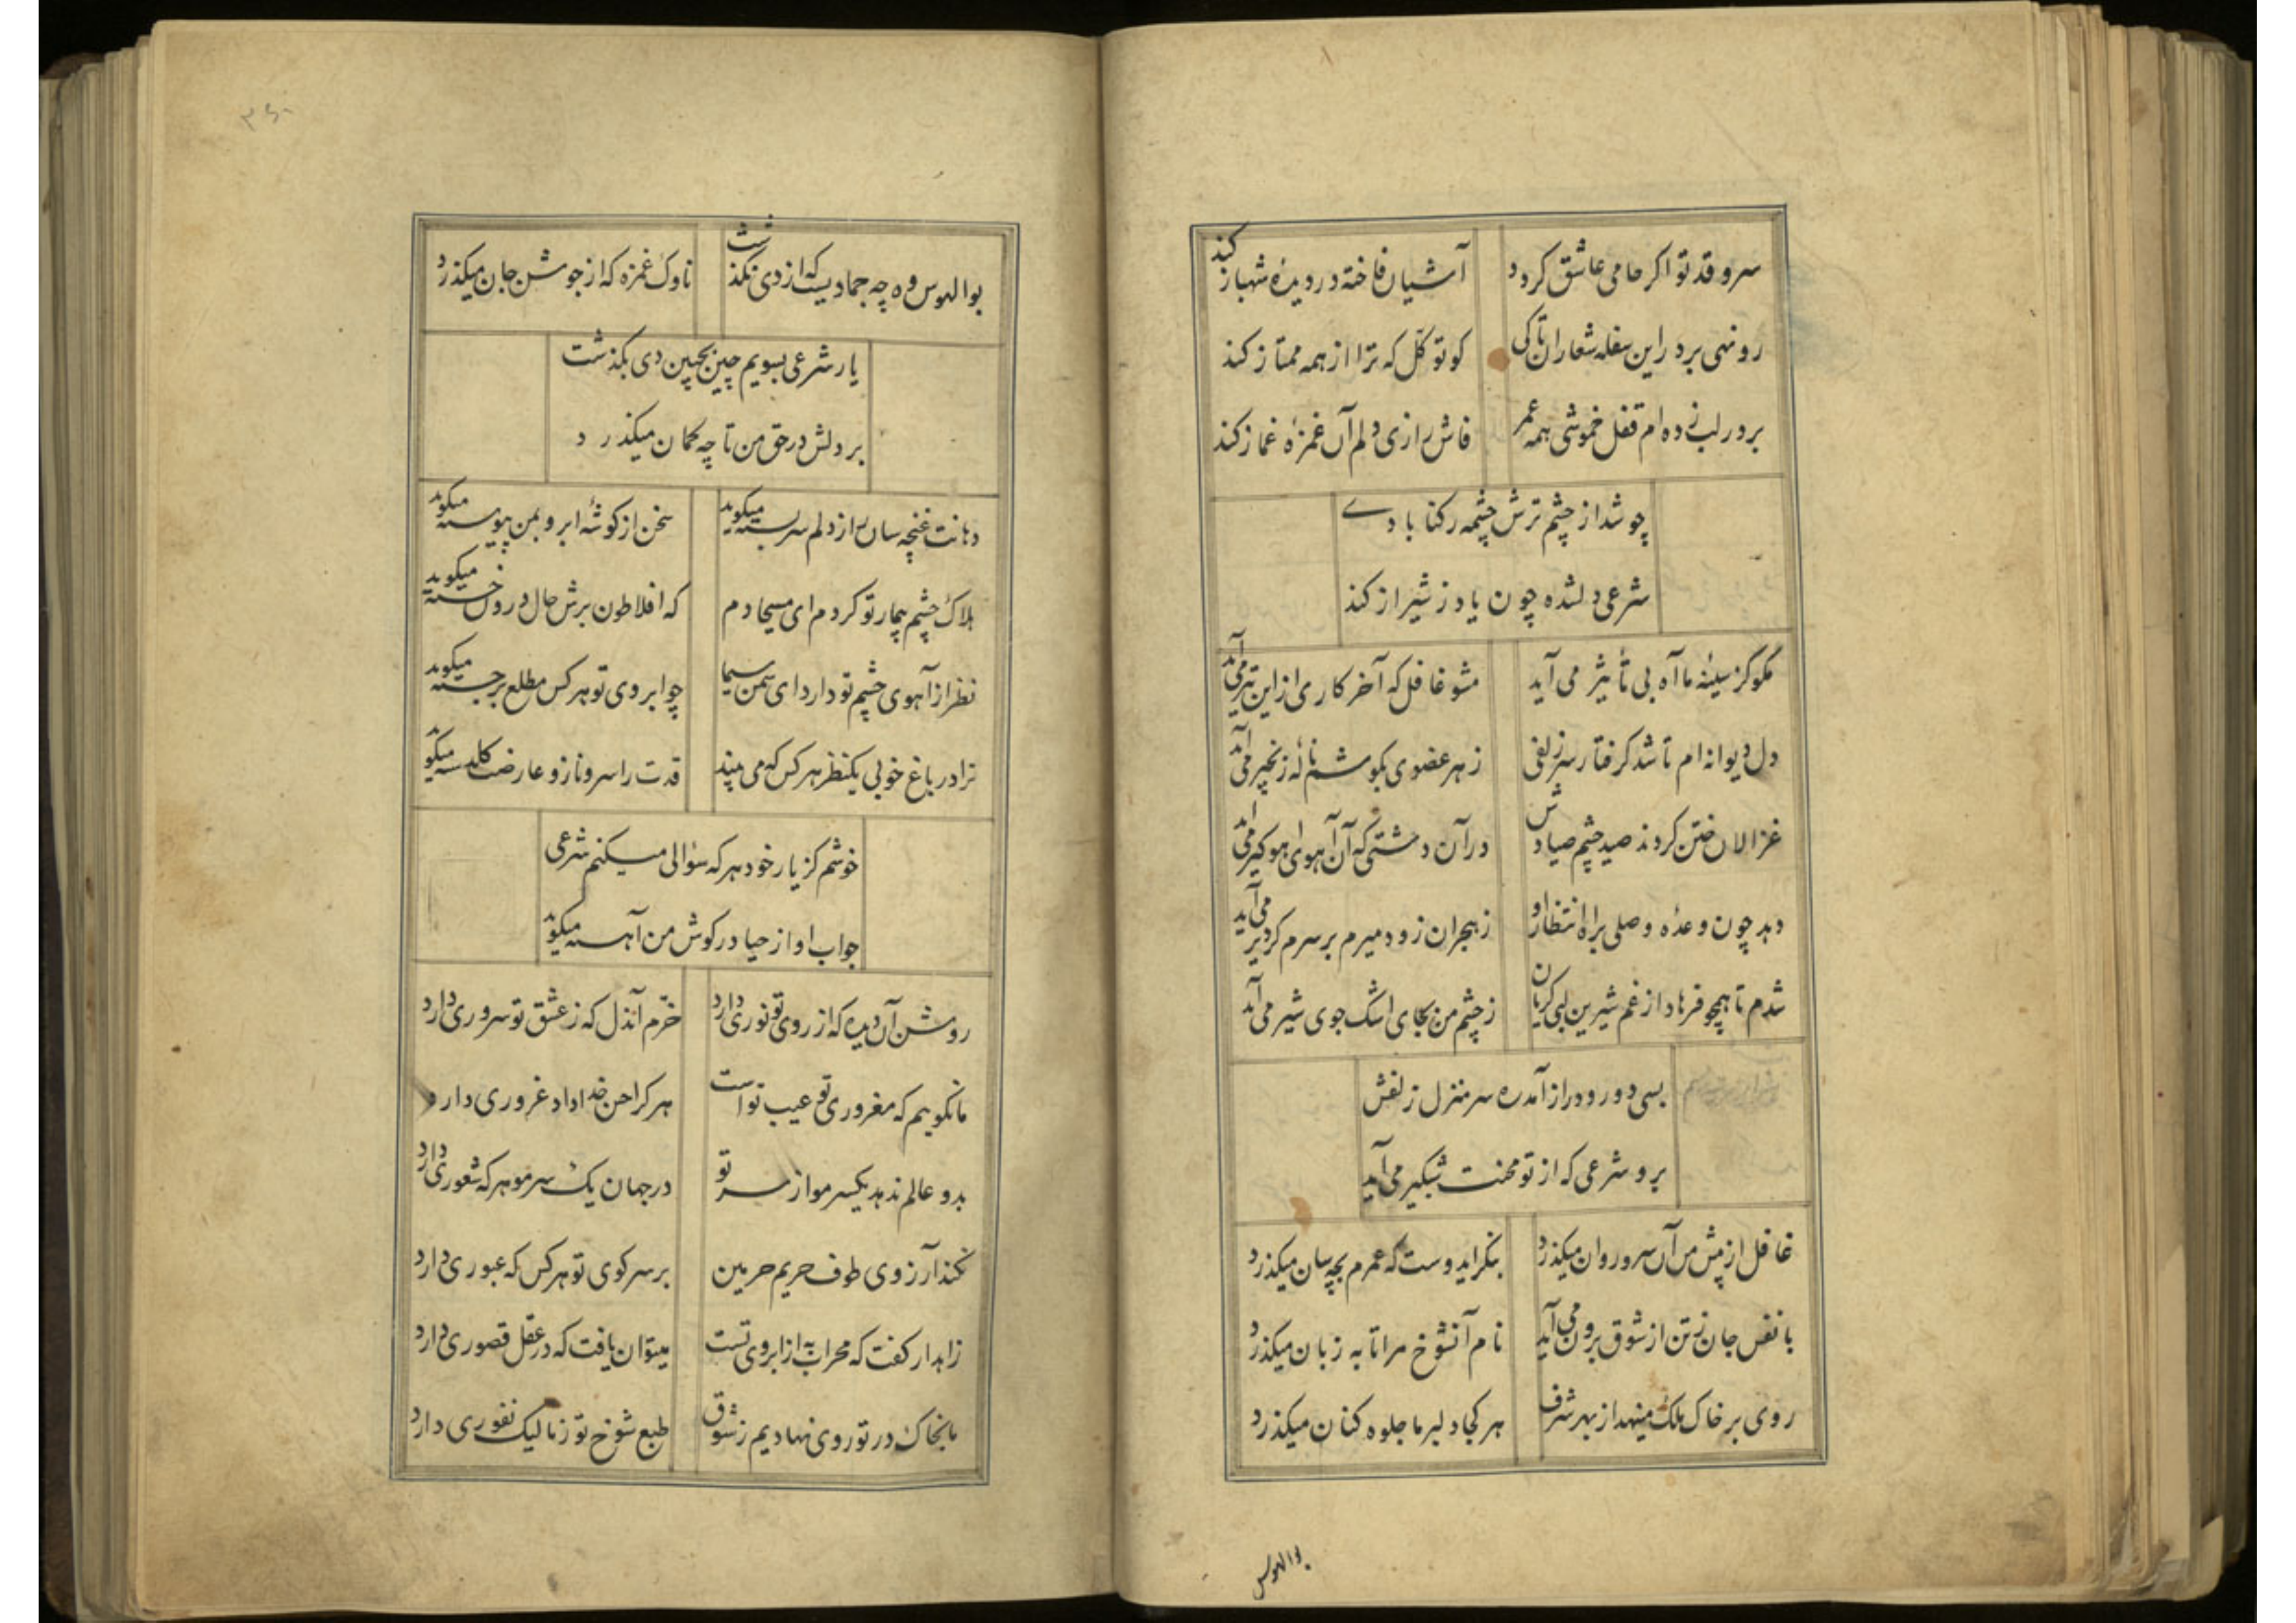 سرو قد تو اگر حامی عاشق گردد آشیان فاخته در دیدهٔ شهباز کند
رو نهی بر در این سفله شعاران تا کی کو توکل که ترا از همه ممتاز کند
بر در لب زده‌ام قفل خموشی همه عمر فاش راز دلم آن غمزهٔ غماز کند
چو شد از چشم ترش چشمه رکنابادی
شرعی دلشده چون یاد ز شیراز کند
مگو کز سینه ما آه بی تأثیر می آید مشو غافل که آخر کاری از این تیر می آید
دل دیوانه‌ام تا شد گرفتار سر زلفی ز هر عضوی بگوشم نالهٔ زنجیر می آید
غزالان ختن گردند صید چشم صیادش در آن دشتی که آن آهوی آهوگیر می آید
دهد چون وعده وصلی براه انتظار او ز هجران زود میرم بر سرم گر دیر می آید
شدم تا همچو فرهاد از غم شیرین لبی گریان ز چشم من بجای اشک جوی شیر می آید
بسی دور و دراز آمد ره سرمنزل زلفش
برو شرعی که از تو محنت شبگیر می آید
غافل از پیش من آن سرو روان میگذرد بنگر ایدوست که عمرم بچه سان میگذرد
با نفس جان ز تن از شوق برون می آید نام آنشوخ مرا تا به زبان میگذرد
روی بر خاک ملک مینهد از بهر شرف هر کجا دلبر ما جلوه کنان میگذرد
بوالهوس
۳۶۰
بوالهوس وه چه جمادیست که از وی نگذشت ناوک غمزه که از جوشن جان میگذرد
یار شرعی بسویم چین بجبین دی بگذشت
بر دلش در حق من تا چه گمان میگذرد
دهانت غنچه سان راز دلم سربسته میگوید سخن از گوشهٔ ابرو بمن پیوسته میگوید
هلاک چشم بیمار تو گردم ای مسیحا دم که افلاطون برش حال درون خسته میگوید
نظر از آهوی چشم تو دارد ای سمن سیما چو ابروی تو هر کس مطلع برجسته میگوید
ترا در باغ خوبی یکنظر هر کس که می بیند قدت را سرو ناز و عارضت گلدسته میگوید
خوشم کز یار خود هر گه سؤالی میکنم شرعی
جواب او از حیا در گوش من آهسته میگوید
روشن آن دیده که از روی تو نوری دارد خرّم آندل که ز عشق تو سروری دارد
ما نگوییم که مغروری تو عیب تو است هر کرا حسن خداداد غروری دارد
بدو عالم ندهد یکسر مو از سر تو در جهان یک سر مو هر که شعوری دارد
نکند آرزوی طوف حریم حرمین بر سر کوی تو هر کس که عبوری دارد
زاهد ار گفت که محراب به از ابروی تست میتوان یافت که در عقل قصوری دارد
ما بخاک در تو روی نهادیم ز شوق طبع شوخ تو ز ما لیک نفوری دارد